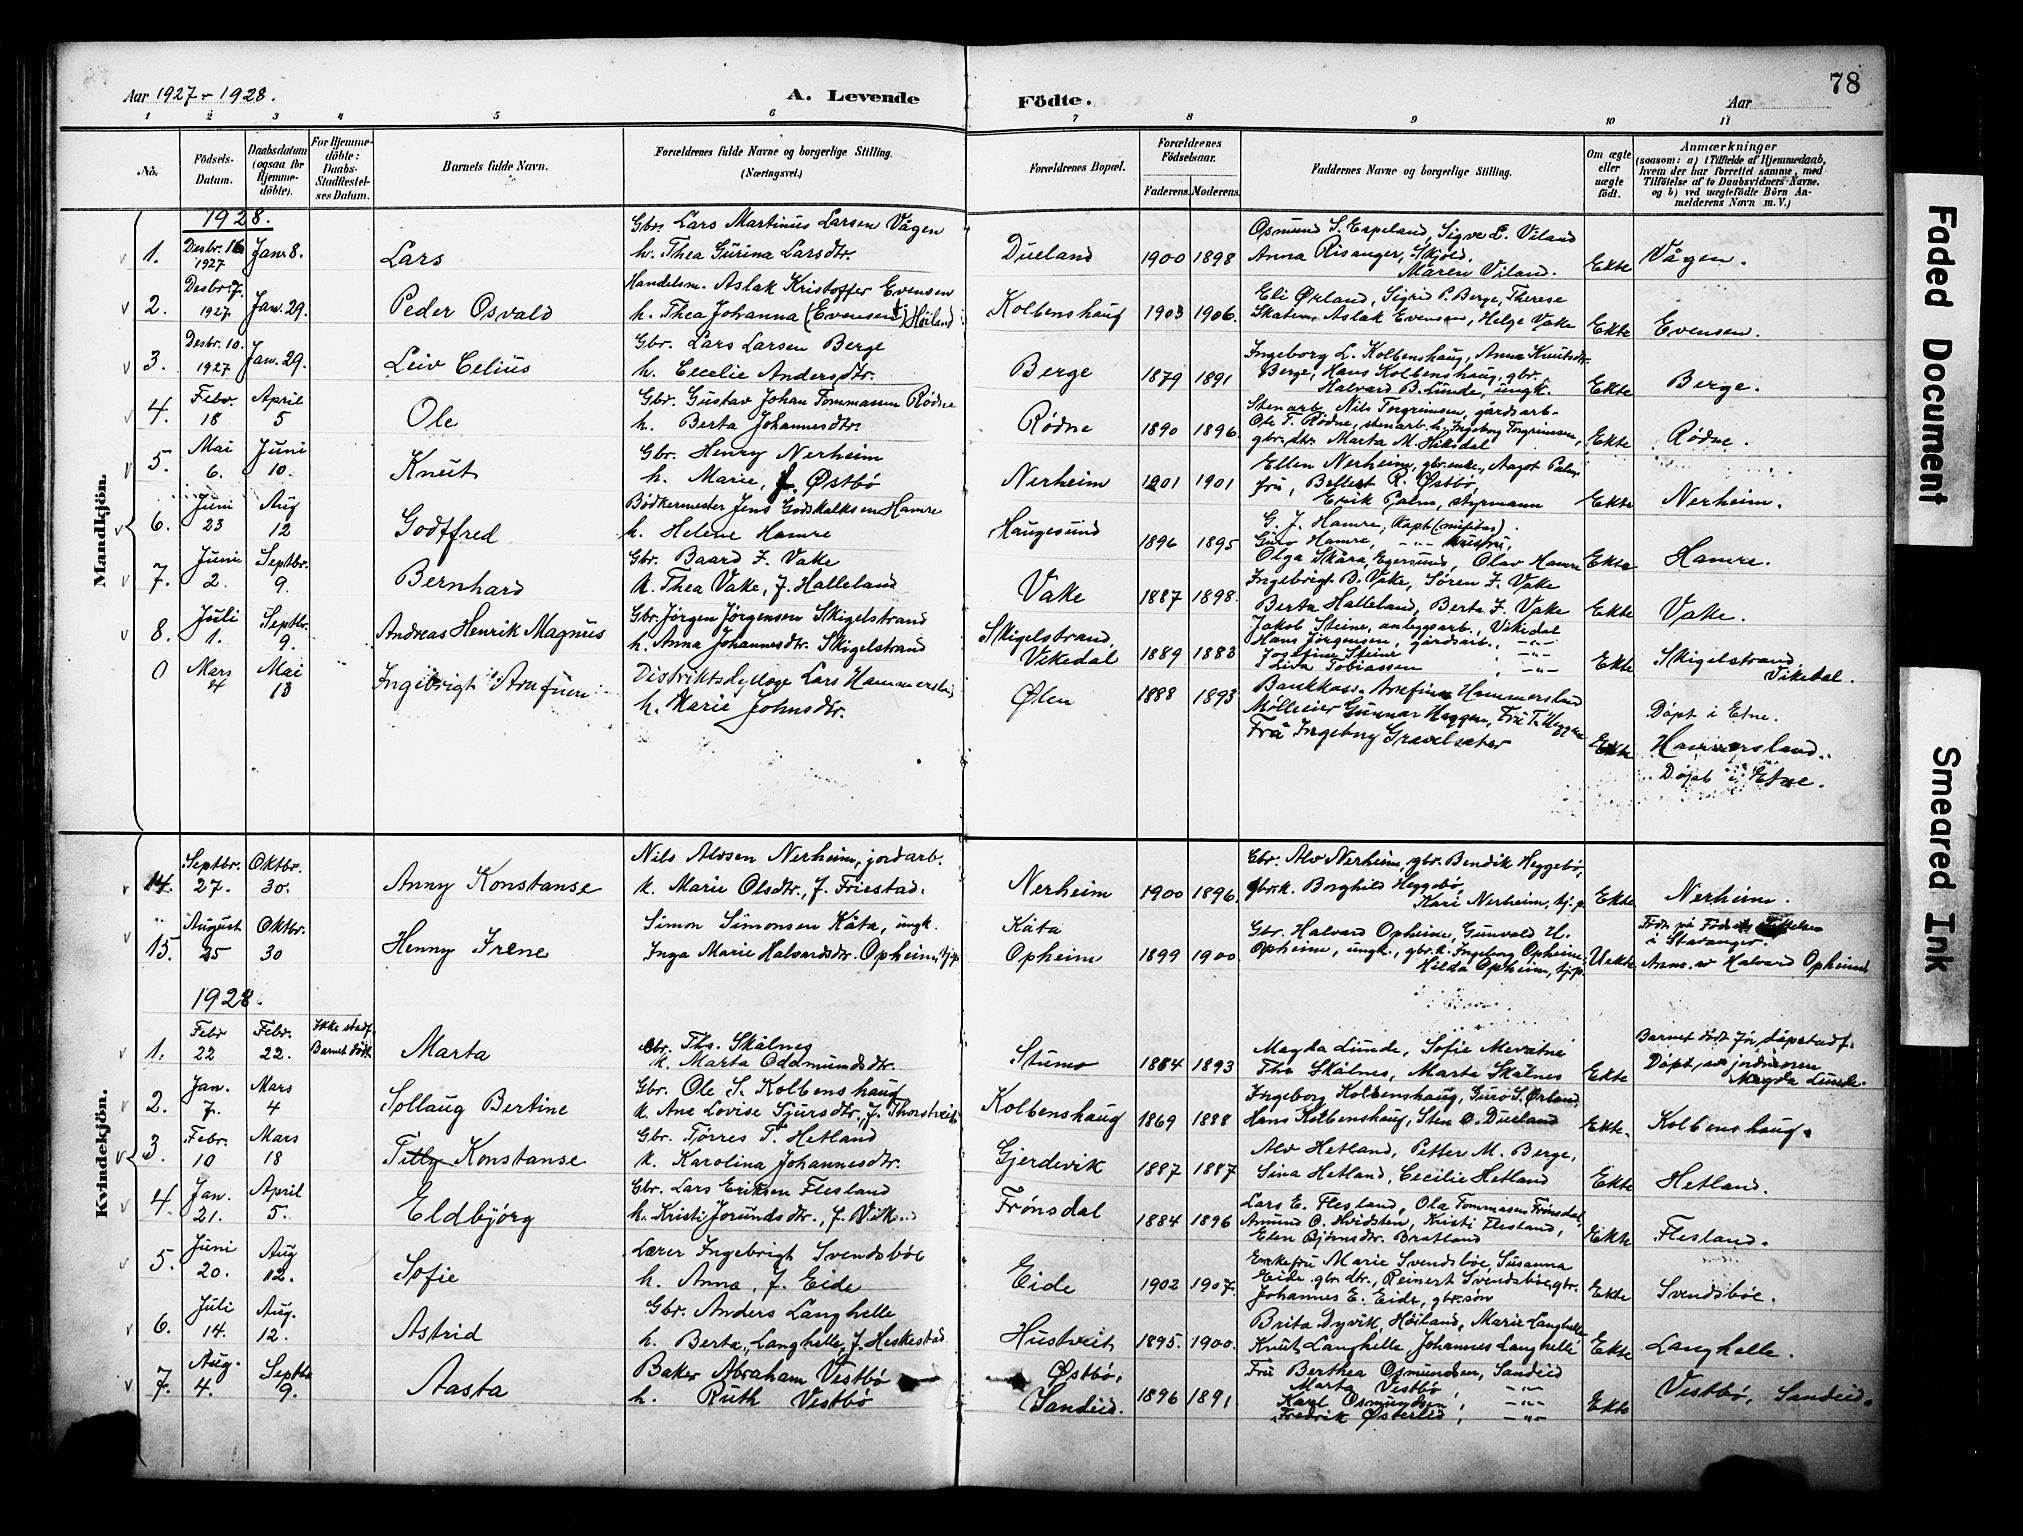 78
Aar 1927 - 1928.
A. Levende Födte.
Aar
1 2 3 4 5 6 7 8 9 10 11
No.
Födsels-Datum.
Daabsdatum (ogsaa for Hjemme-döbte).
For Hjemme-döbte: Daabs-Stadfæstel-ses Datum.
Barnets fulde Navn.
Forældrenes fulde Navne og borgerlige Stilling.
(Næringsvei.)
Forældrenes Bopæl.
Forældrenes Födselsaar.
Faderens. Moderens.
Faddernes Navne og borgerlige Stilling.
Om ægte eller uægte födt.
Anmærkninger
(saasom: a) i Tilfælde af Hjemmedaab, hvem der har forrettet samme, med Tilföielse af to Daabsvidners Navne. og b) ved uægtefödte Börn An-melderens Navn m. V.)
Mandkjön.
1928.
1. Desbr. 16 1927 Janr 8. Lars
Gbr. Lars Martinus Larsen Vågen
h. Thea Gurina Larsdtr.
Dueland 1900 1898
Osmund S. Espeland, Sigve L. Viland
Anna Risanger, Skjold,
Maren Viland.
Ekte Vågen.
2. Desbr. 7. 1927 Jan. 29. Peder Osvald
Handelsm. Aslak Kristoffer Evensen
h. Thea Johanna (Evensen f. Høiland)
Kolbenshaug 1903 1906.
Eli Ørland, Sigrid P. Berge, Therese
Skaten, Aslak Evensen, Helge Vake
Ekte Evensen.
3. Desbr. 10. 1927 Jan. 29. Leiv Celius
Gbr. Lars Larsen Berge
h. Cecelie Andersdtr.
Berge 1879 1891
Ingeborg L. Kolbenshaug, Anna Knutsdtr.
Berge, Hans Kolbenshaug, gbr.
Halvard B. Lunde, ungk.
Ekte Berge.
4. Febr. 18 April 5 Ole
Gbr. Gustav Johan Tommassen Rødne
h. Berta Johannesdtr.
Rødne 1890 1896.
Stenarb. Nils Torgrimsen, gårdsarb.
Ole T. Rødne, stenarb. h. Ingeborg Torgrimsen,
gbr. dtr. Marta M. Hiksdal
Ekte Rødne.
5. Mai 6. Juni 10. Knut
Gbr. Henry Nerheim
h. Marie, f. Østbø
Nerheim 1901 1901
Ellen Nerheim, gbr. enke, Aagot Palm
fru, Bellest R. Østbø,
Erik Palm, styrmann
Ekte Nerheim.
6. Juni 23 Aug 12 Godtfred
Bødkermester Jens Godskalksen Hamre
h. Helene Hamre
Haugesund 1896 1895
G. J. Hamre, kapt.
Guro Hamre,
Olga Skåra, Egersund, Olav Hamre
Ekte Hamre.
7. Juni 2. Septbr. 9. Bernhard
Gbr. Baard F. Vake
k. Thea Vake, f. Halleland
Vake 1887 1898.
Ingebrigt B. Vake, Søren F. Vake
Berta Halleland, Berta F. Vake
Ekte Vake.
8. Juli 1. Septbr. 9. Andreas Henrik Magnus
Gbr. Jørgen Jørgensen Skigelstrand
h. Anna Johannesdtr. Skigelstrand
Skigelstrand, Vikedal 1889 1883
Jakob Steine, anlegsarb., Vikedal
Hans Jørgensen, gårdsarb., -"-
Josefine Steine , -"-
Liva Tobiassen , -"-
Ekte Skigelstrand, Vikedal.
0 Mars 4 Mai 13 Ingebrigt Arnfinn
Distriktsdyrlæge Lars Hammersland
h. Marie Johnsdtr.
Ølen 1888 1893
Bankkass. Arnfinn Hammersland
Møllreier Gunnar Heggen, Fru T. Heggen
Fru Ingeborg Gravelsæter
Ekte
Døpt i Etne.
Hammersland.
Døpt i Etne.
Kvindekjön.
14. Septbr. 27. Oktbr. 30. Anny Konstanse
Nils Alvsen Nerheim, jordarb.
k. Marie Olsdtr., f. Friestad.
Nerheim 1900 1896.
Gbr. Alv Nerheim, gbr. Bendik Heggebø,
gbrk. Borghild Heggebø,
Kari Nerheim, tj.p.
Ekte Nerheim.
15. August 25 Oktbr. 30 Henny Irene
Simon Simonsen Kåta, ungk.
Inga Marie Halvardsdtr. Opheim, tj.p.
Kåta
Opheim 1899 1900
Gbr. Halvard Opheim, Gunvald H.
Opheim, ungk., gbr. k. Ingeborg Opheim,
Hilda Opheim, tj.p.
Uekte
i Stavanger.
Anm. av Halvard Opheim
1928.
1. Febr 22 Febr. 22. Ikke stadf. Barnet dødt. Marta
Gbr. Ths. Skålnes
k. Marta Oddmundsdtr.
Stumo 1884 1893
Magda Lunde, Sofie Mevatne
Ths Skålnes, Marta Skålnes
Ekte
Barnet dødt før dåpstadf.
Døpt av jordmoren
Magda Lunde.
2. Jan. 7. Mars 4 Sollaug Bertine
Gbr. Ole S. Kolbenshaug
k. Ane Lovise Sjursdtr., f. Thorstveit
Kolbenshaug 1869 1888
Ingeborg Kolbenshaug, Guro S. Ørland,
Hans Kolbenshaug, Sten O. Dueland
Ekte. Kolbenshaug.
3. Febr. 10 Mars 18 Tilly Konstanse
Gbr. Tørres T. Hetland
k. Karolina Johannesdtr.
Gjerdevik 1887 1887
Alv Hetland, Petter M. Berge,
Sina Hetland, Cecilie Hetland
Ekte Hetland.
4. Jan. 21. April 5. Eldbjørg
Gbr. Lars Eriksen Flesland
h. Kristi Jorundsdtr., f. Vik
Frønsdal 1884 1896
Lars E. Flesland, Ola Tommassen Frønsdal,
Amund O. Hvidsten, Kristi Flesland,
Elen Bjørnsdtr. Bratland
Ekte Flesland.
5. Juni 20. Aug 12. Sofie
Lærer Ingebrigt Svendsbøe
h. Anna, f. Eide
Eide 1902 1907.
Enkefru Marie Svendsbøe, Susanna
Eide gbr. dtr., Reinert Svendsbøe, gbr.
Johannes E. Eide, gbr. søn
Ekte Svendsbøe.
6. Juli 14. Aug. 12. Astrid
Gbr. Anders Langhelle
h. Berta Langhelle, f. Heskestad
Hustveit 1895. 1900.
Brita Dyvik, Høiland, Marie Langhelle
Knut Langhelle, Johannes Langhelle
Ekte Langhelle.
7. Aug. 4. Septbr 9. Aasta
Baker Abraham Vestbø
h. Ruth Vestbø
Østbø, Sandeid. 1896 1891
Fru Berthea Osmundsen, Sandeid
Marta Vestbø , -"-
Karl Osmundsen , -"-
Fredrik Østerlid , -"-
Ekte Vestbø, Sandeid.
Faded Document
Smeared Ink